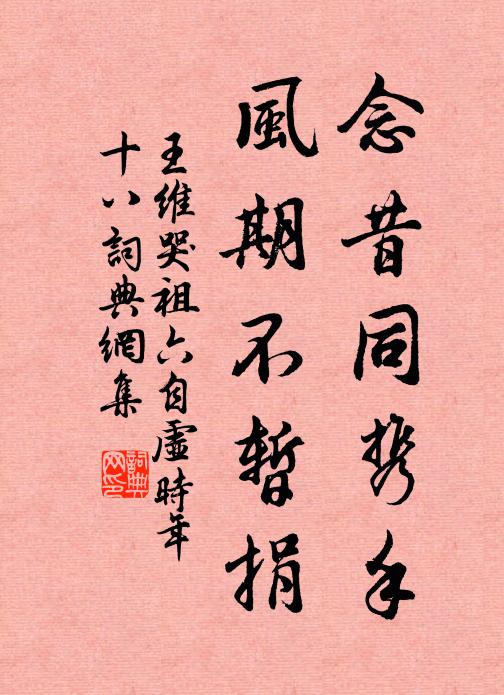 念昔同携手
風期不暫捐
王維哭祖六自虛時年
十八詞典網集
詞典網印